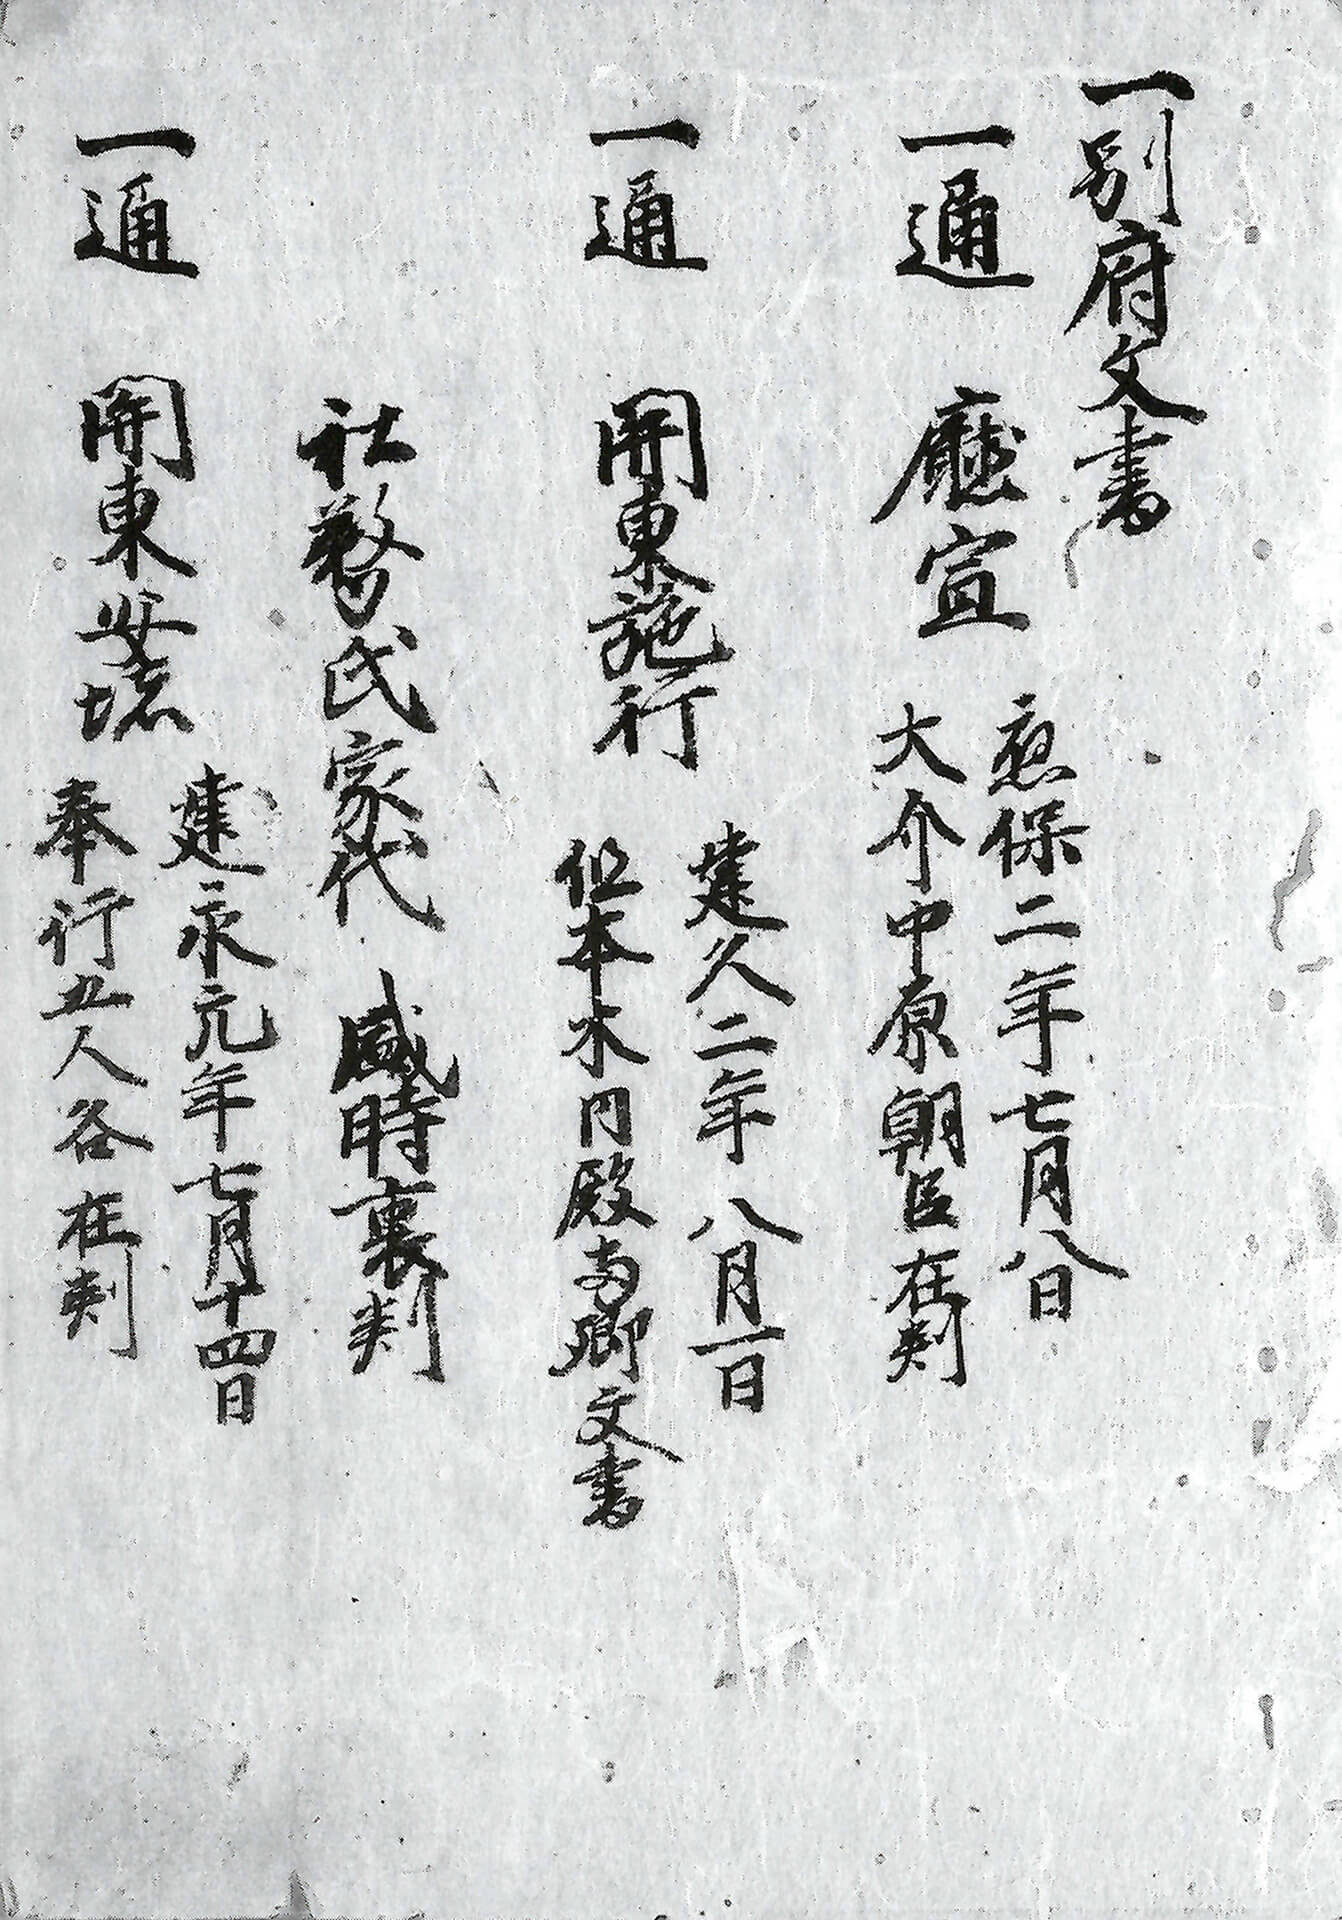 一別府文書
一通　廳宣　應保二年七月八日
大介中原朝臣在判
一通　関東施行　建久二年八月一日
但本木内殿御文書
社務氏家代　盛時裏判
一通　関東安堵　建永元年七月十四日
奉行五人各在判